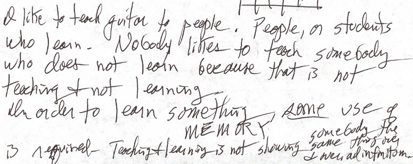 I like to teach guitar to people. People, or students
who learn. Nobody likes to teach somebody
who does not learn because that is not
teaching & not learning.
In order to learn something, some use of
MEMORY,
is required - Teaching & learning is not showing somebody the
same thing over
& over ad infinitum.